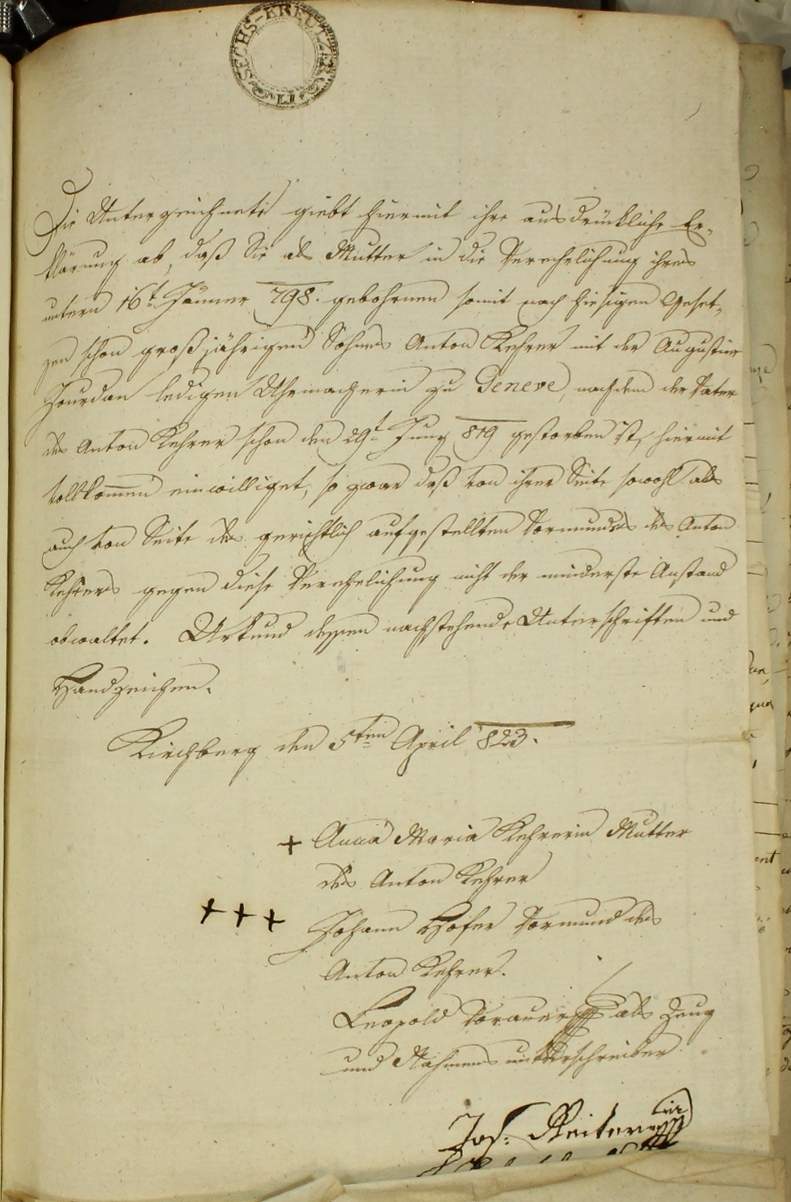 SECHS-KREUTZER
Die Unterzeichnete giebt hiermit ihre ausdrückliche Er-
klärung ab, daß Sie als Mutter in die Verehelichung ihres
untern 16t Jänner 798. gebohrnen somit nach hiesigen Geset-
zen schon großjährigen Sohnes Anton Kehrer mit der Augustine
Jourdan ledigen Uhrmacherin zu Geneve, nachdem der Vater
des Anton Kehrer schon den 29t Juny 819 gestorben ist, hiermit
vollkom̅en einwilliget, so zwar daß von ihrer Seite sowohl als
auch von Seite des gerichtlich aufgestellten Vormundes des Anton
Kehrers gegen diese Verehelichung nicht der mindeste Anstand
obwaltet. Urkund dessen nachstehende Unterschriften und
Handzeichen.
Kirchberg den 5ten April 823.
+ Anna Maria Kehrerin Mutter
des Anton Kehrer
+++ Johann Hofer Vormund des
Anton Kehrer.
Leopold als Zeug
und Nahmens unterschreiber
Jos: Reiter